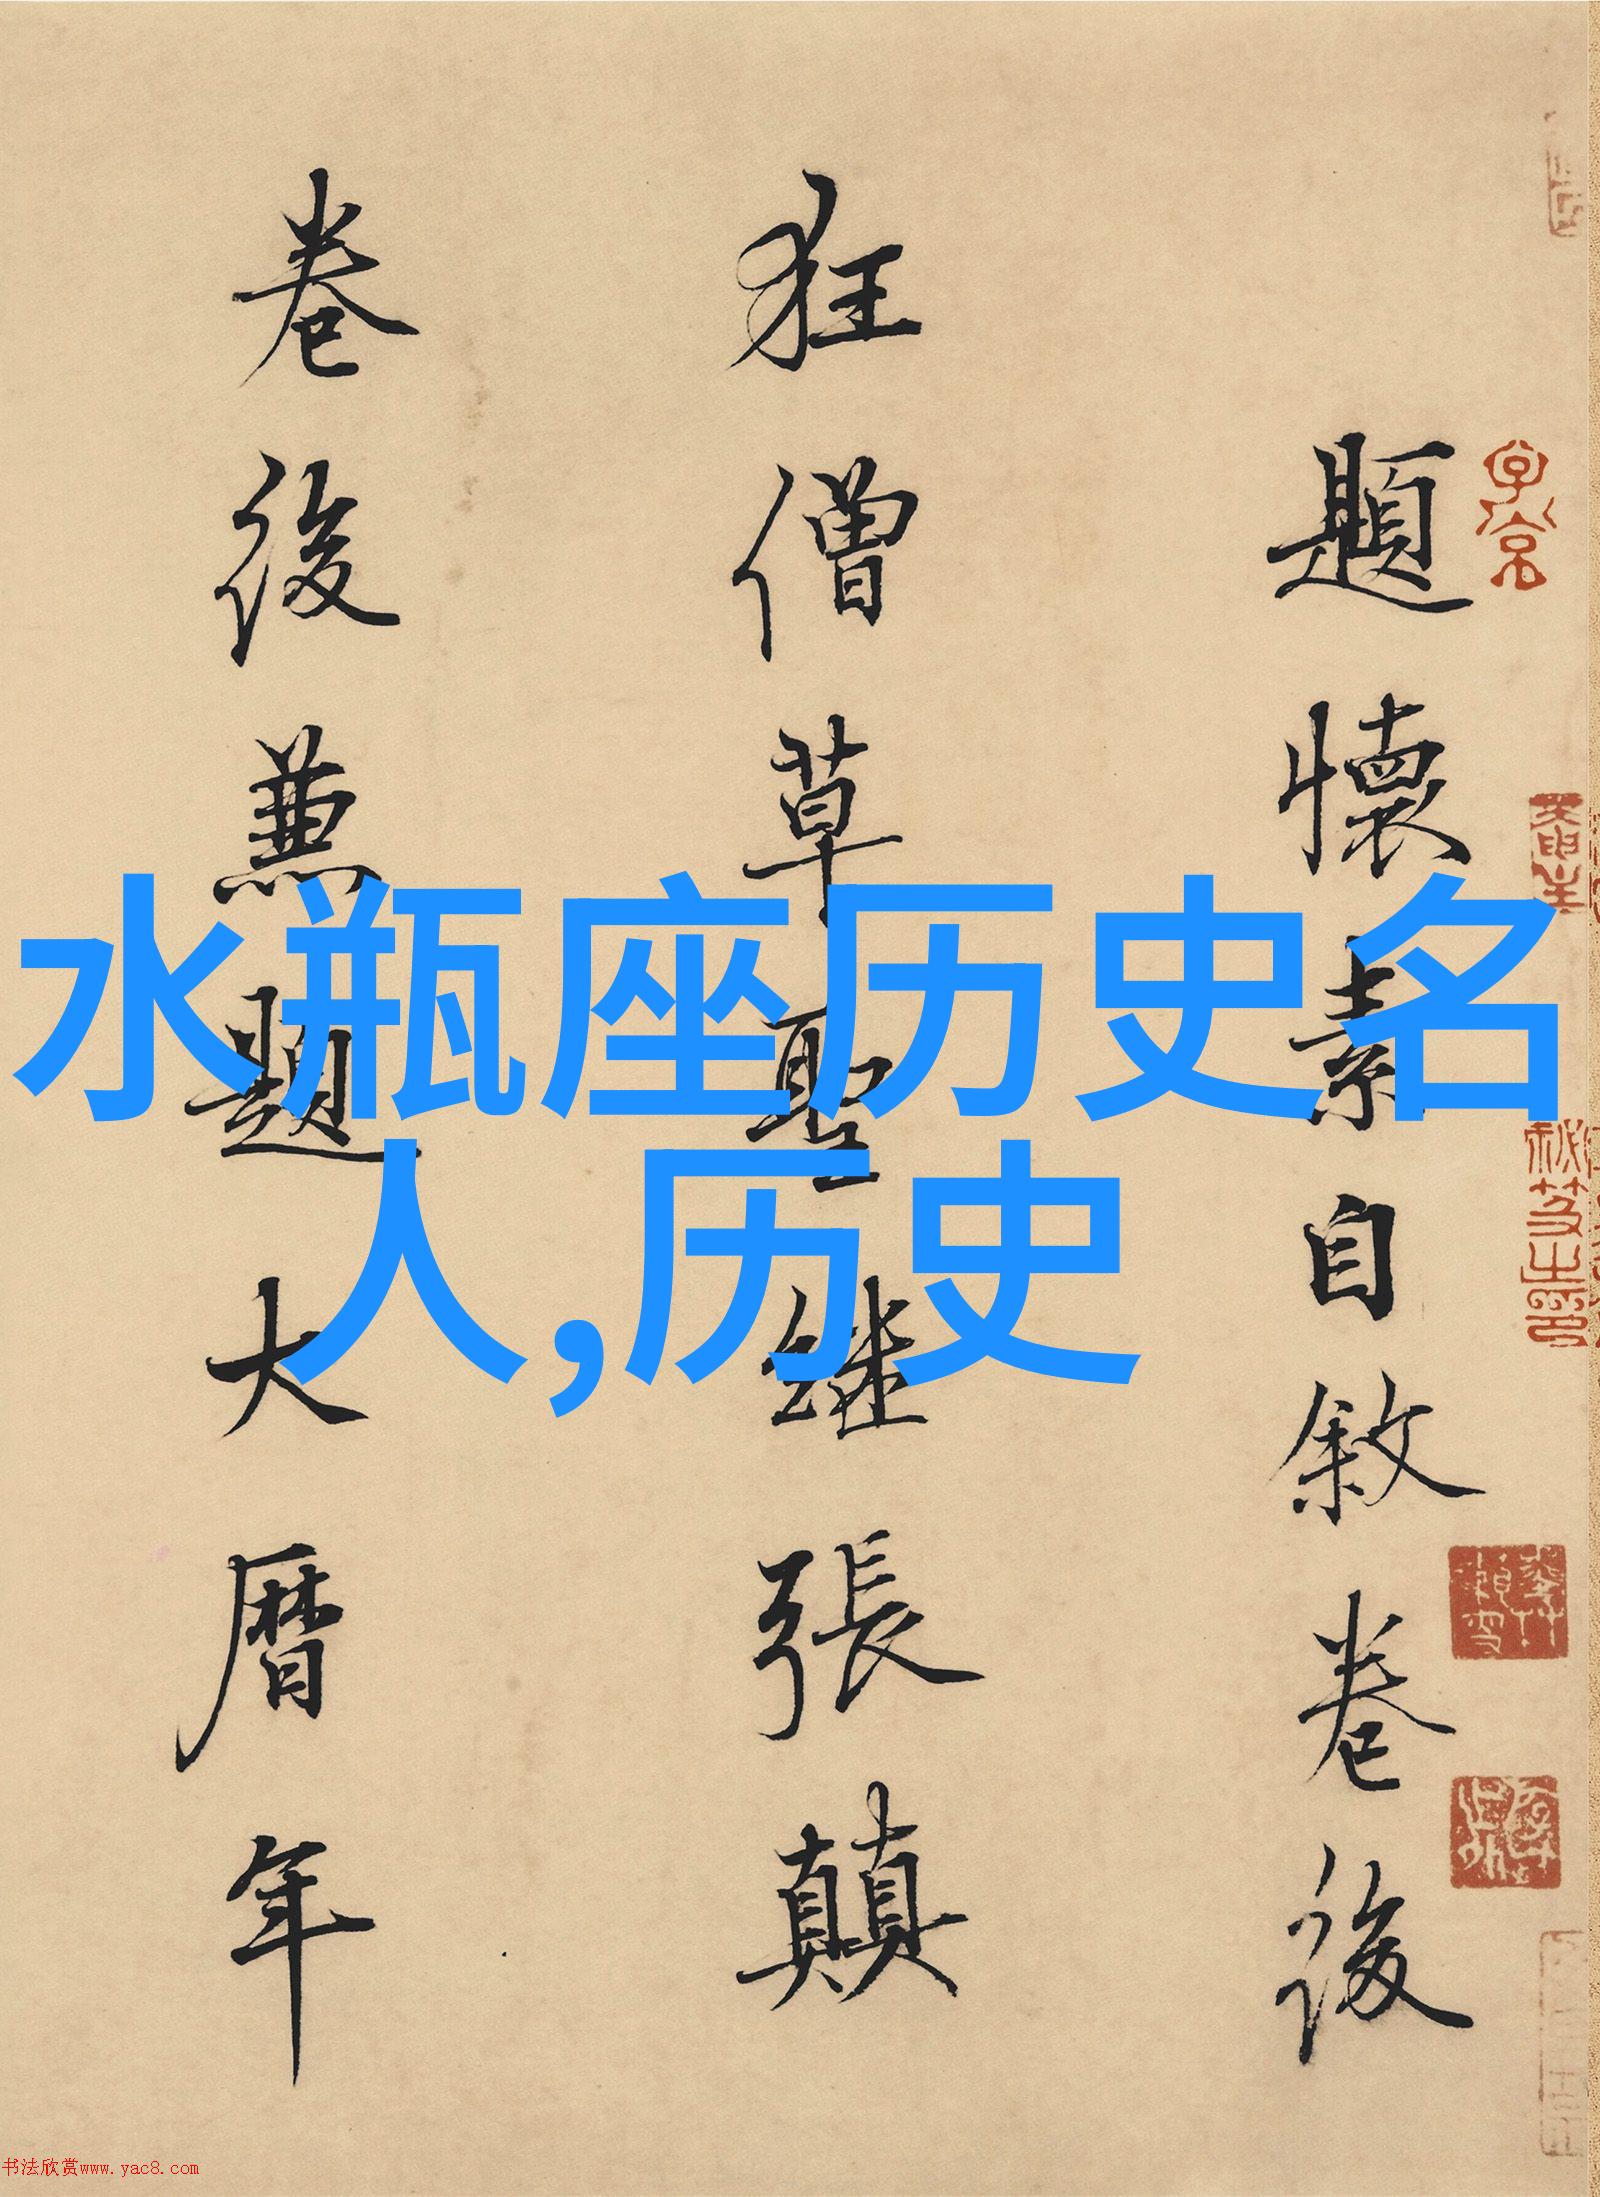 題懷素自敘卷後
狂僧草聖继張顛
卷後兼題大曆年
水瓶座历史名
人,历史
书法欣赏www.yac8.com